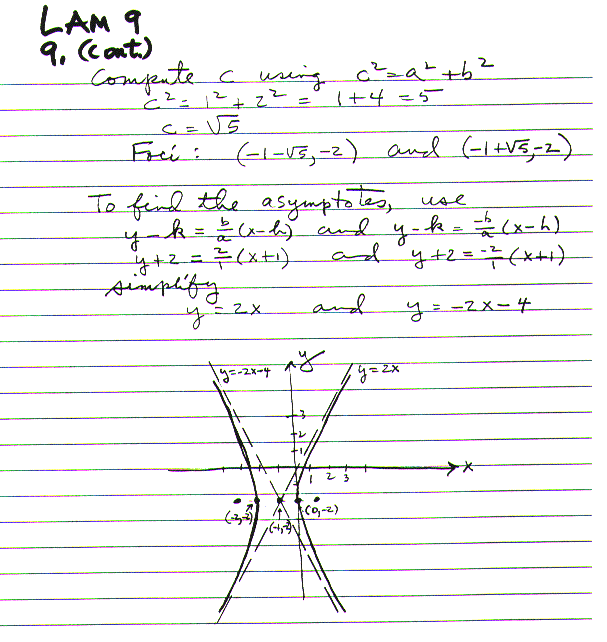 LAM 9
9. (cont.)
Compute c using c² = a² + b²
c² = 1² + 2² = 1 + 4 = 5
c = √5
Foci: (-1-√5, -2) and (-1+√5, -2)
To find the asymptotes, use
y - k = b/a (x-h) and y - k = -b/a (x-h)
y + 2 = 2/1 (x+1) and y + 2 = -2/1 (x+1)
simplify
y = 2x and y = -2x - 4
y=-2x-4 y y=2x
3
2
1
1 2 3 x
(-2,-2) (-1,-2) (0,-2)